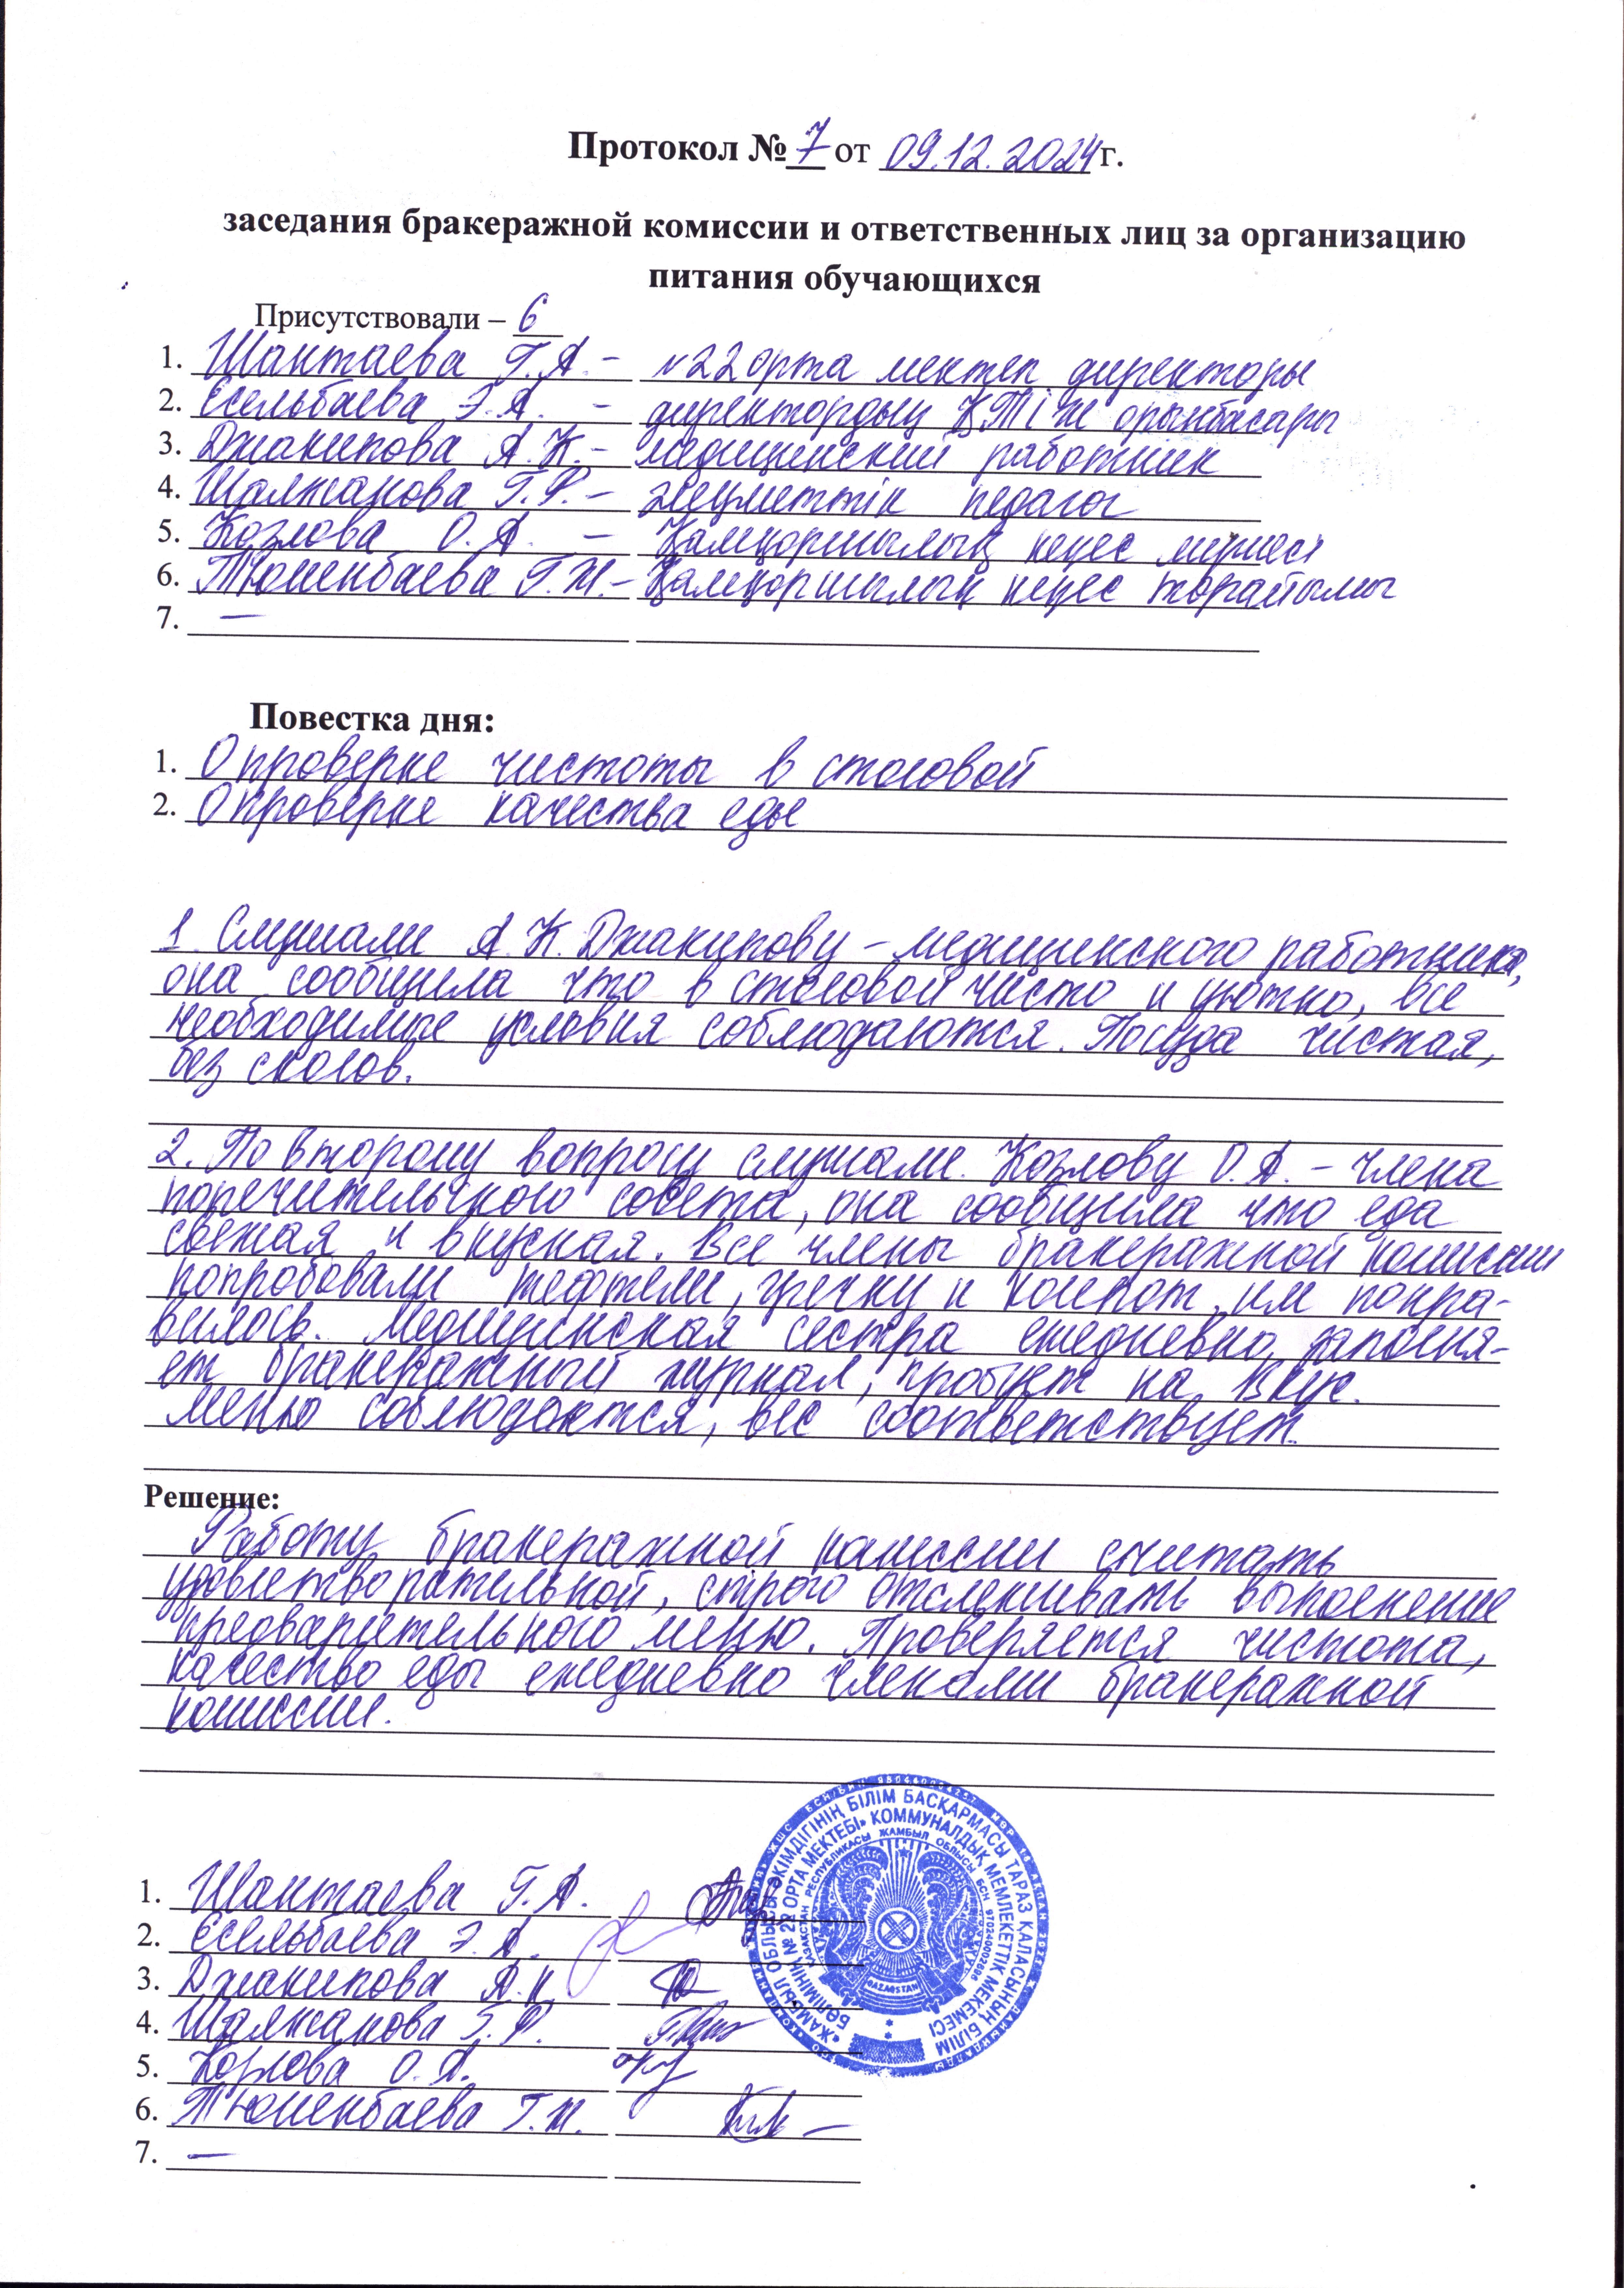 Протокол № 7 от 09.12.2024 г.
заседания бракеражной комиссии и ответственных лиц за организацию
питания обучающихся
Присутствовали – 6
1. Шантаева Г.А. - №22 орта мектеп директоры
2. Есельбаева Э.А. - директордың ҚТІЖ орынбасары
3. Джакипова А.К. - медицинский работник
4. Шалжанова Г.Ф. - әлеуметтік педагог
5. Козлова О.А. - Қамқоршылық кеңес мүшесі
6. Тюменбаева Г.Ж. - Қамқоршылық кеңес төрайымы
7. —
Повестка дня:
1. О проверке чистоты в столовой
2. О проверке качества еды
1. Слушали А.К. Джакипову - медицинского работника,
она сообщила что в столовой чисто и уютно, все
необходимые условия соблюдаются. Посуда чистая,
без сколов.
2. По второму вопросу слушали Козлову О.А. - члена
попечительского совета, она сообщила что еда
свежая и вкусная. Все члены бракеражной комиссии
попробовали тефтели, гречку и компот, им понра-
вилось. Медицинская сестра ежедневно заполня-
ет бракеражный журнал, пробует на вкус.
Меню соблюдается, вес соответствует.
Решение:
Работу бракеражной комиссии считать
удовлетворательной, строго отслеживать выполнение
предварительного меню. Проверяется чистота,
качество еды ежедневно членами бракеражной
комиссии.
1. Шантаева Г.А.
2. Есельбаева Э.А.
3. Джакипова А.К.
4. Шалжанова Г.Ф.
5. Козлова О.А.
6. Тюменбаева Г.Ж.
7. —
«ЖАМБЫЛ ОБЛЫСЫ ӘКІМДІГІНІҢ БІЛІМ БАСҚАРМАСЫ ТАРАЗ ҚАЛАСЫНЫҢ БІЛІМ
БӨЛІМІНІҢ № 22 ОРТА МЕКТЕБІ» КОММУНАЛДЫҚ МЕМЛЕКЕТТІК МЕКЕМЕСІ
ҚАЗАҚСТАН РЕСПУБЛИКАСЫ ЖАМБЫЛ ОБЛЫСЫ БСН
QAZAQSTAN